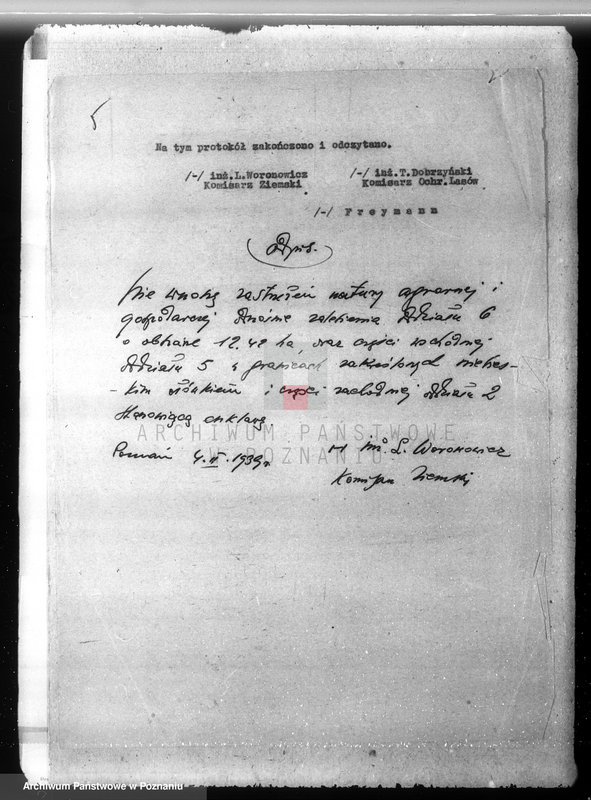 5
Na tym protokół zakończono i odczytano.
/-/ inż.L.Woronowicz /-/ inż.T.Dobrzyński
Komisarz Ziemski Komisarz Ochr.Lasów
/-/ Freymann
Odpis.
Nie wnoszę zastrzeżeń natury agrarnej i
gospodarczej odnośnie zalesienia oddziału 6
o obszarze 12.42 ha, oraz części wschodniej
oddziału 5 w granicach zakreślonych niebies-
- kim ołówkiem i części zachodniej oddziału 2
stanowiącą enklawę
Poznań 4.II.1939r. /-/ inż. L. Woronowicz
Komisarz Ziemski
ARCHIWUM PAŃSTWOWE
W POZNANIU
Archiwum Państwowe w Poznaniu